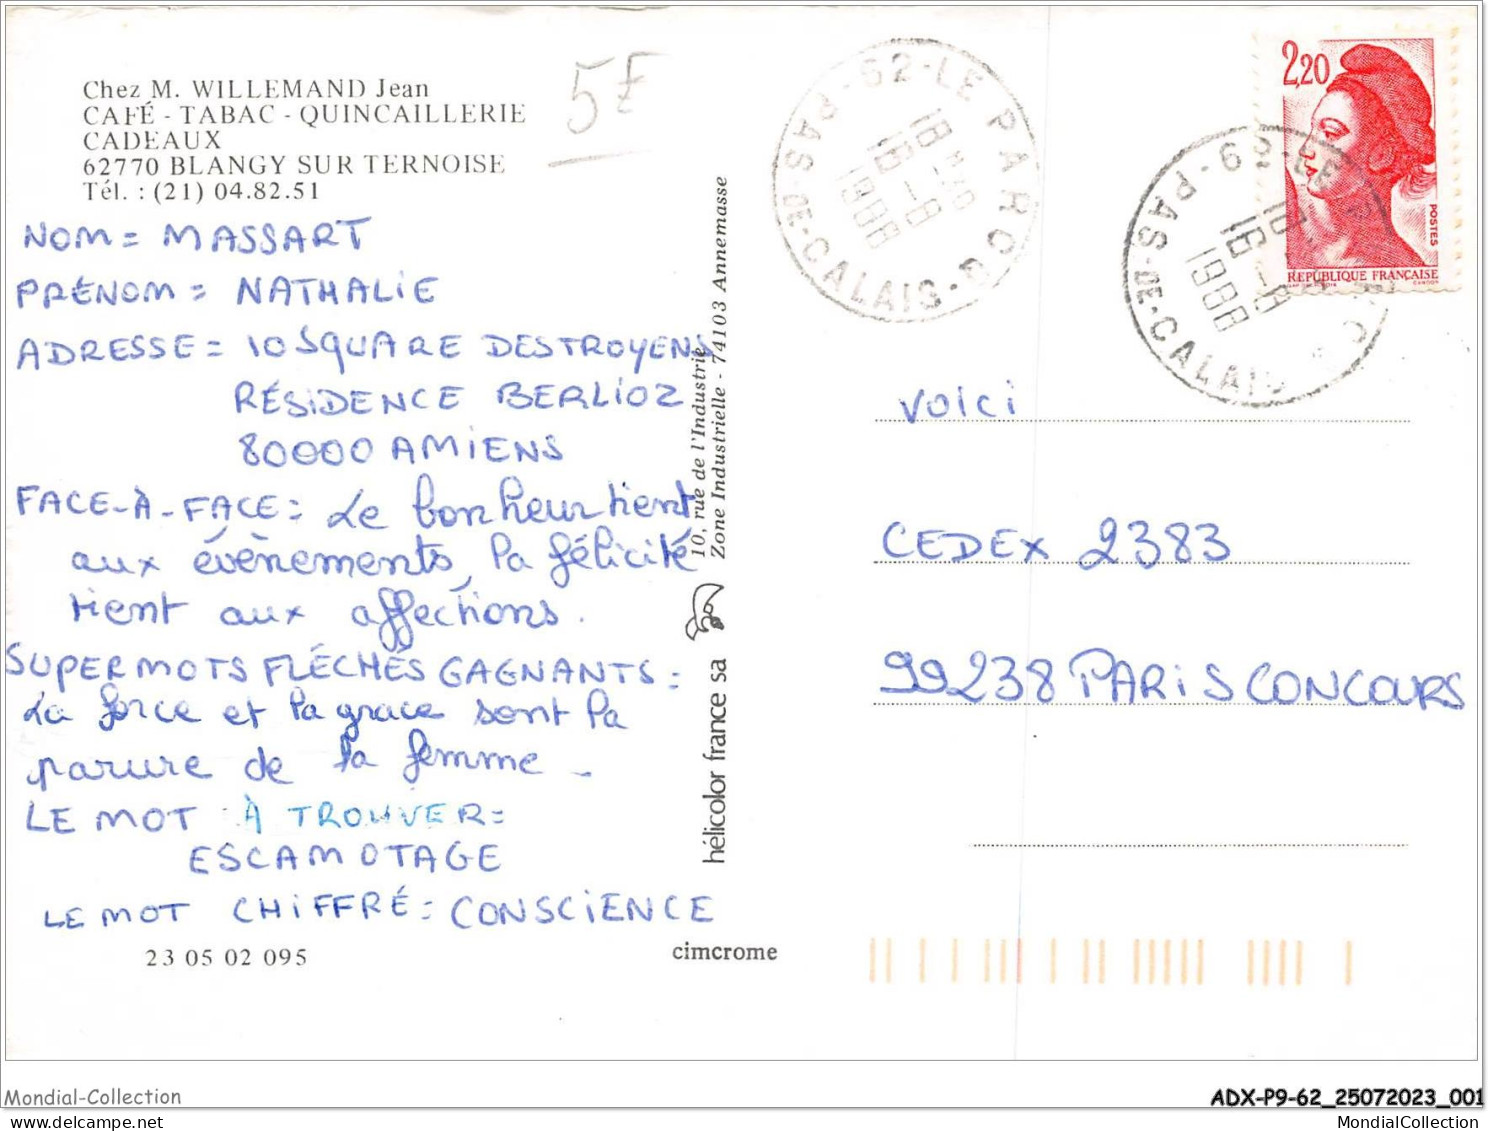 Chez M. WILLEMAND Jean
CAFÉ - TABAC - QUINCAILLERIE
CADEAUX
62770 BLANGY SUR TERNOISE
Tél. : (21) 04.82.51
5F
NOM = MASSART
PRÉNOM = NATHALIE
ADRESSE = 10 SQUARE DESTROYENS
RÉSIDENCE BERLIOZ
80000 AMIENS
FACE-À-FACE = Le bonheur tient
aux évènements, la félicité
tient aux affections.
SUPER MOTS FLÉCHÉS GAGNANTS :
La force et la grace sont la
parure de la femme -
LE MOT À TROUVER =
ESCAMOTAGE
LE MOT CHIFFRÉ = CONSCIENCE
23 05 02 095
cimcrome
hélicolor france sa
10, rue de l'Industrie
Zone Industrielle - 74103 Annemasse
62-LE PARCQ
PAS-DE-CALAIS
16-8
1988
2,20
POSTES
RÉPUBLIQUE FRANÇAISE
62-LE
PAS-DE-CALAIS
16-8
1988
VOICI
CEDEX 2383
99238 PARIS CONCOURS
Mondial-Collection
ADX-P9-62_25072023_001
MondialCollection